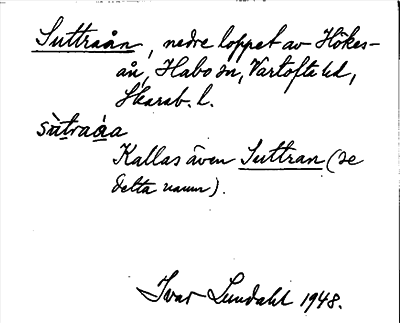 Suttraån, nedre loppet av Hökes-
ån, Habo sn, Vartofta hd,
Skarab. l.
sùtraåa
Kallas även Suttran (se
detta namn).
Ivar Lundahl 1948.